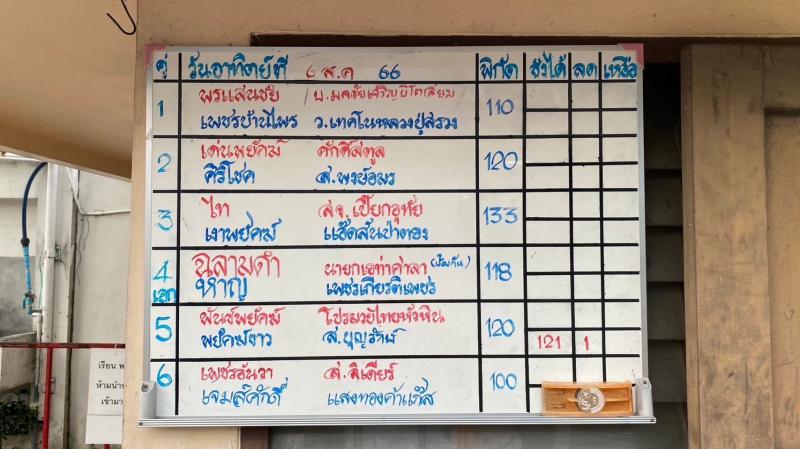 คู่ วันอาทิตย์ที่ 6 ส.ค 66 พิกัด ชั่งได้ ลด เหลือ
1 พรแสนชัย 110
เพชรบ้านไพร ว.เทคโนหลวงปู่สรวง
2 เด่นพยัคฆ์ ศักดิ์สตูล 120
ศิริโชค ส.พงษ์อมร
3 ไท สจ.เปี๊ยกอุทัย 133
เงาพยัคฆ์ แอ๊ดสันป่าตอง
4 ฉลามดำ นายกเอท่าศาลา 118
เอก หาญ เพชรเกียรติเพชร
5 พันธ์พยัคฆ์ โปรมวยไทยหัวหิน 120
พยัคฆ์ขาว ส.บุญรัตน์ 121 1
6 เพชรธันวา ส.สิเดียร์ 100
เจมส์ศักดิ์ แสงทองค้าแก๊ส
เรียน พ
ห้ามนำร
เข้ามา